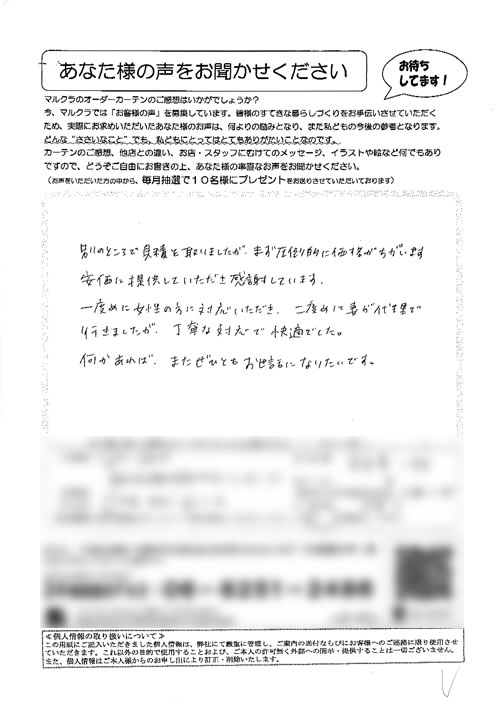 あなた様の声をお聞かせください
お待ち
してます！
マルクラのオーダーカーテンのご感想はいかがでしょうか？
今、マルクラでは「お客様の声」を募集しています。皆様のすてきな暮らしづくりをお手伝いさせていただく
ため、実際にお求めいただいたあなた様のお声は、何よりの励みとなり、また私どもの今後の参考となります。
どんな“ささいなこと”でも、私どもにとってはとてもありがたいことなのです。
カーテンのご感想、他店との違い、お店・スタッフにむけてのメッセージ、イラストや絵など何でもあり
ですので、どうぞご自由にお書きの上、あなた様の率直なお声をお聞かせください。
（お声をいただいた方の中から、毎月抽選で１０名様にプレゼントをお送りさせていただいております）
別のところで見積を取りましたが、まず圧倒的に価格がちがいます
安価に提供していただき感謝しています。
一度めに女性の方に対応いただき、二度めに妻が代理で
行きましたが、丁寧な対応で快適でした。
何かあれば、またぜひともお世話になりたいです。
≪個人情報の取り扱いについて≫
この用紙にご記入いただきました個人情報は、弊社にて厳重に管理し、ご案内の送付ならびにお客様へのご連絡に限り使用させ
ていただきます。これ以外の目的で使用することおよび、ご本人の許可無く外部への開示・提供することは一切ございません。
また、個人情報はご本人様からのお申し出により訂正・削除いたします。